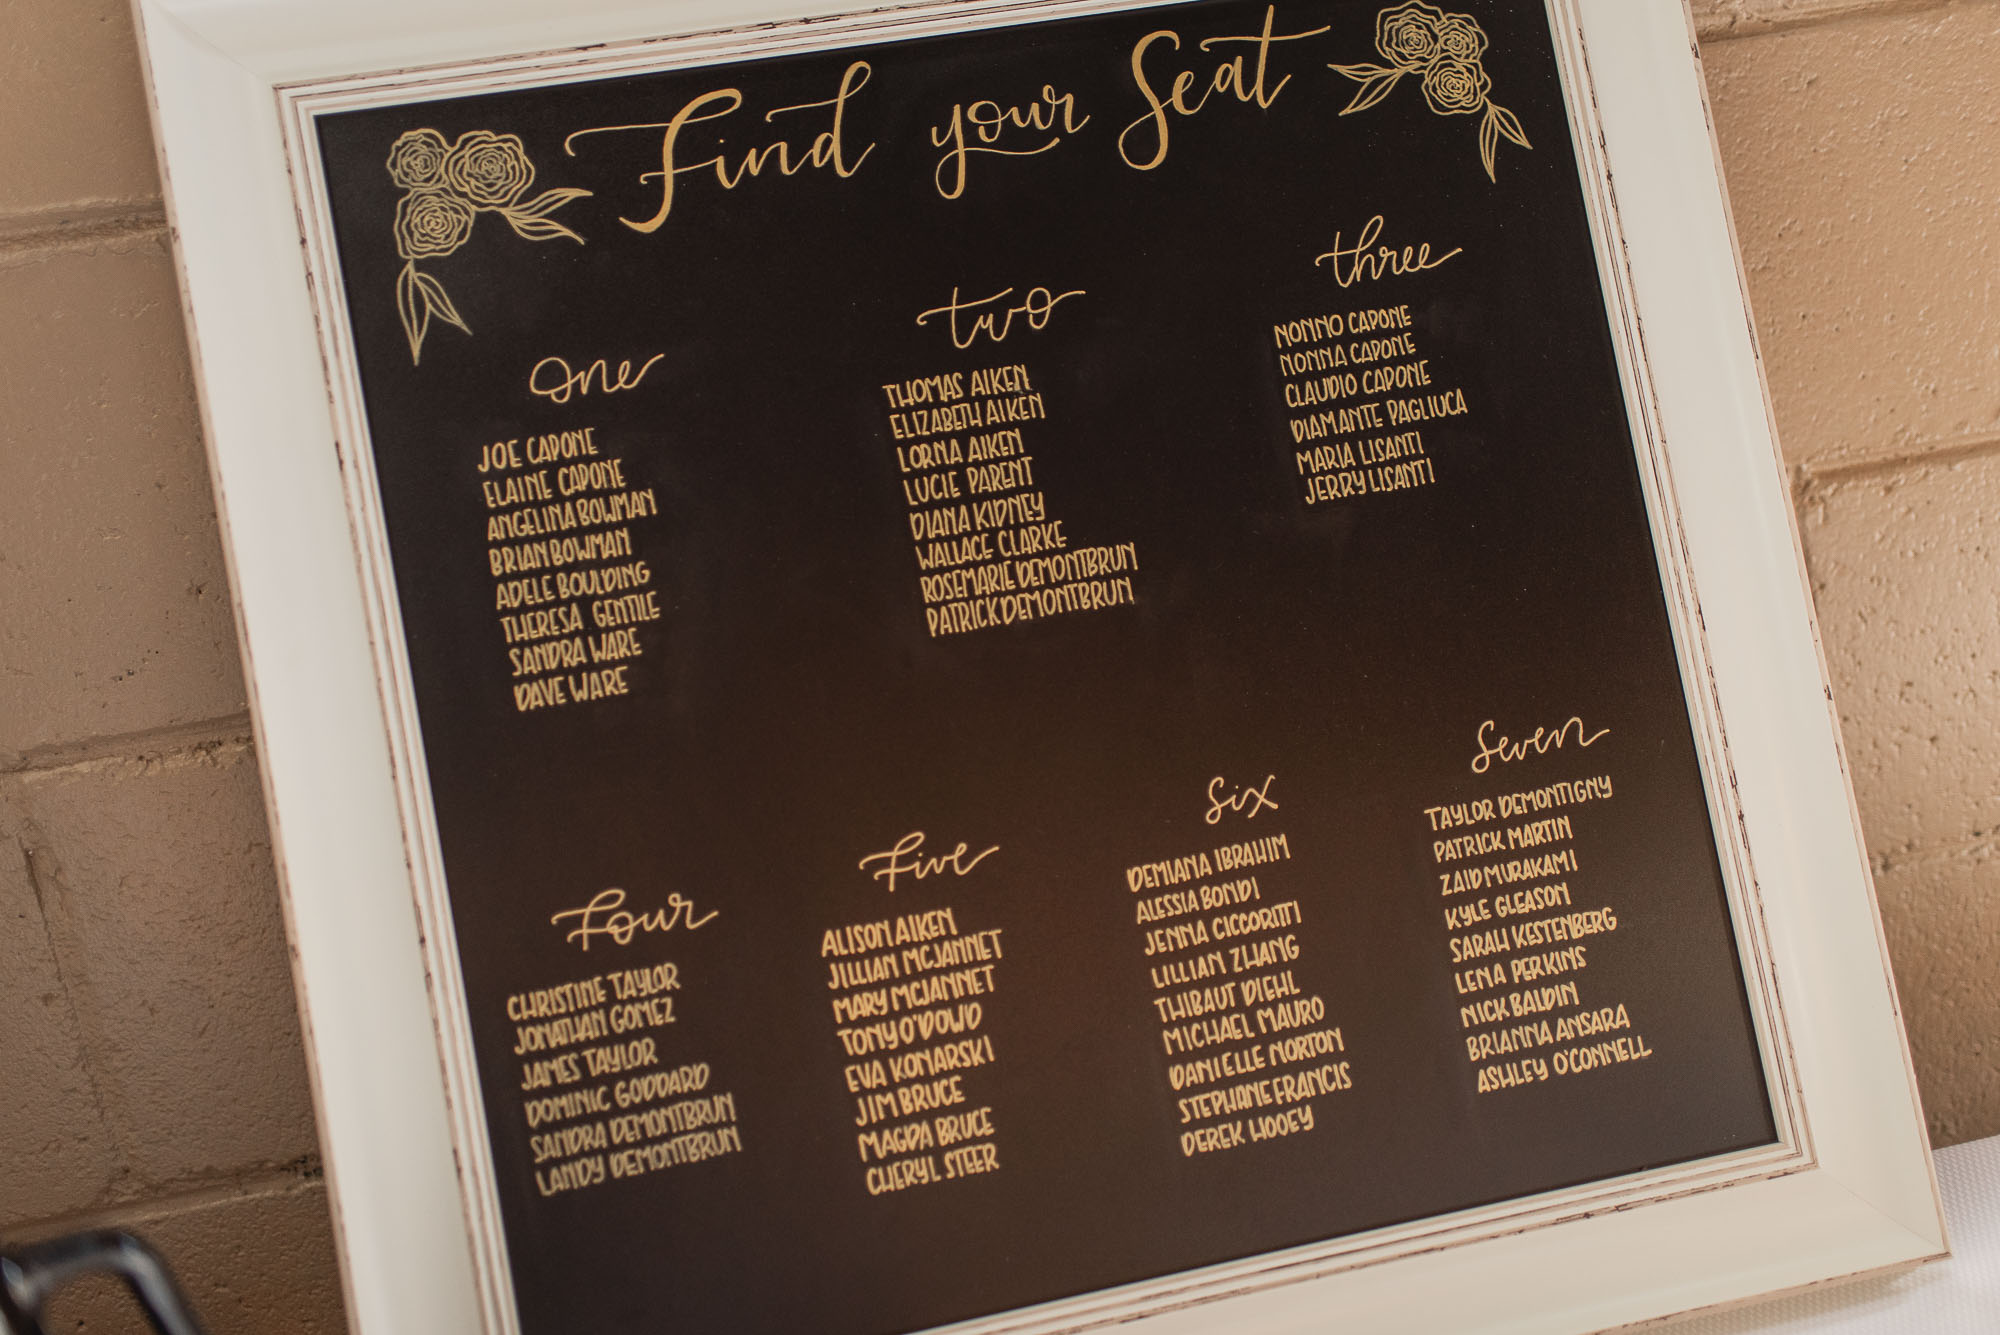 Find your Seat
one
JOE CAPONE
ELAINE CAPONE
ANGELINA BOWMAN
BRIAN BOWMAN
ADELE BOULDING
THERESA GENTILE
SANDRA WARE
DAVE WARE
two
THOMAS AIKEN
ELIZABETH AIKEN
LORNA AIKEN
LUCIE PARENT
DIANA KIDNEY
WALLACE CLARKE
ROSEMARIE DEMONTBRUN
PATRICK DEMONTBRUN
three
NONNO CAPONE
NONNA CAPONE
CLAUDIO CAPONE
DIAMANTE PAGLIUCA
MARIA LISANTI
JERRY LISANTI
four
CHRISTINE TAYLOR
JONATHAN GOMEZ
JAMES TAYLOR
DOMINIC GODDARD
SANDRA DEMONTBRUN
LANDY DEMONTBRUN
five
ALISON AIKEN
JILLIAN MCJANNET
MARY MCJANNET
TONY O'DOWD
EVA KONARSKI
JIM BRUCE
MAGDA BRUCE
CHERYL STEER
six
DEMIANA IBRAHIM
ALESSIA BONDI
JENNA CICCORITTI
LILLIAN ZHANG
THIBAUT DIEHL
MICHAEL MAURO
DANIELLE NORTON
STEPHANE FRANCIS
DEREK HOOEY
seven
TAYLOR DEMONTIGNY
PATRICK MARTIN
ZAID MURAKAMI
KYLE GLEASON
SARAH KESTENBERG
LENA PERKINS
NICK BALDIN
BRIANNA ANSARA
ASHLEY O'CONNELL